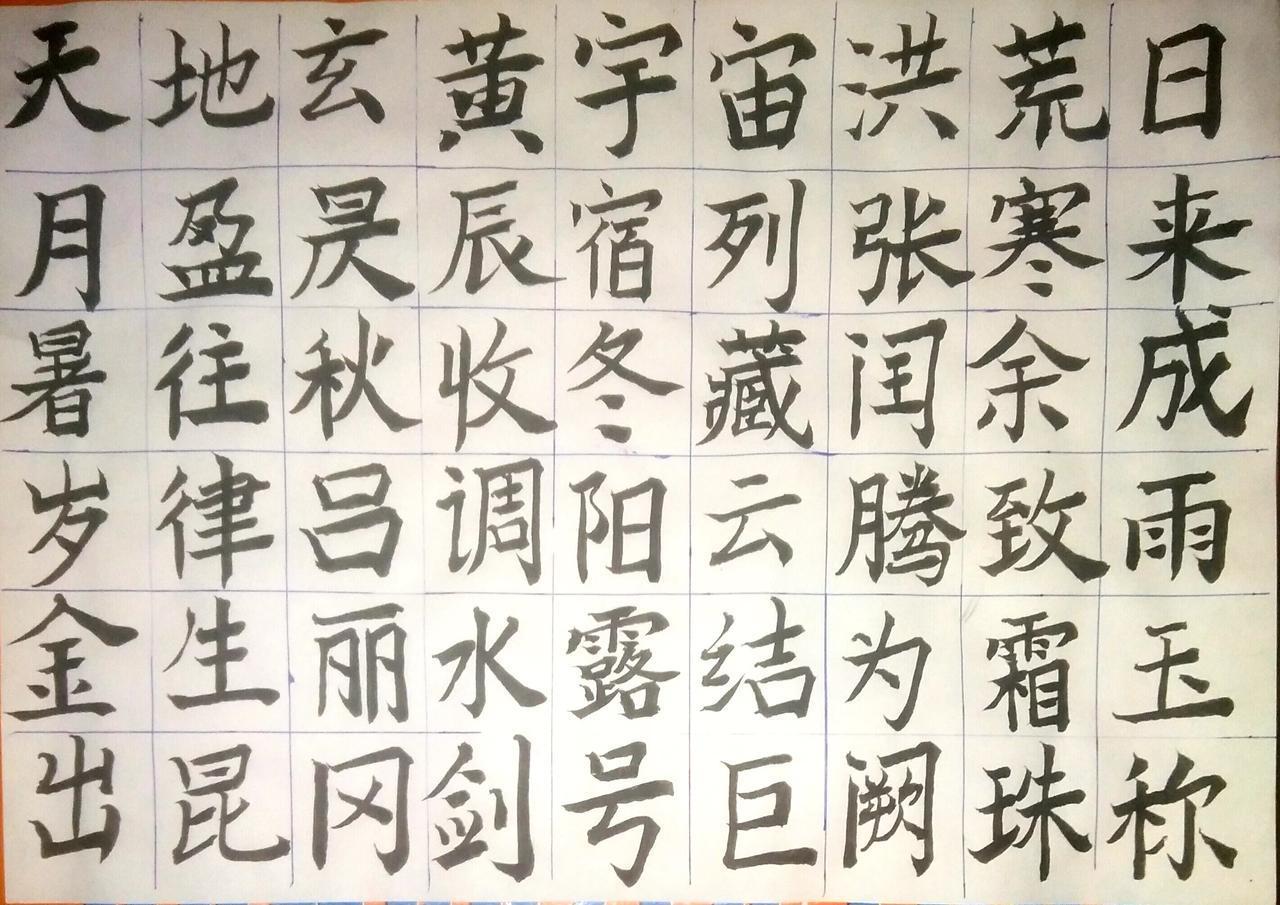 天地玄黄宇宙洪荒日
月盈昃辰宿列张寒来
暑往秋收冬藏闰余成
岁律吕调阳云腾致雨
金生丽水露结为霜玉
出昆冈剑号巨阙珠称